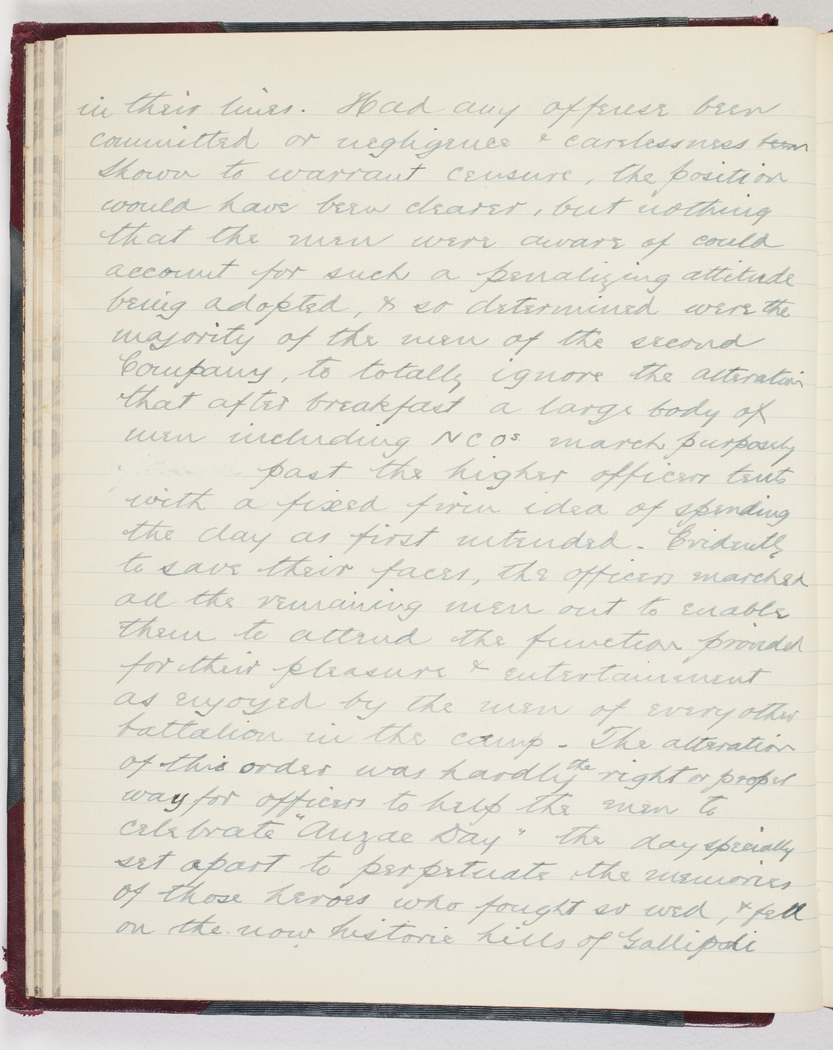 in their lines. Had any offense been
committed or negligence & carelessness been
shown to warrant censure, the position
would have been clearer, but nothing
that the men were aware of could
account for such a penalizing attitude
being adopted, & so determined were the
majority of the men of the second
Company, to totally ignore the alteration
that after breakfast a large body of
men including NCOs march purposely
past the higher officers tents
with a fixed firm idea of spending
the day as first intended. Evidently
to save their faces, the officers marched
all the remaining men out to enable
them to attend the function provided
for their pleasure & entertainment
as enjoyed by the men of every other
battalion in the camp. The alteration
of this order was hardly the right or proper
way for officers to help the men to
celebrate "Anzac Day" the day specially
set apart to perpetuate the memories
of those heroes who fought so well, & fell
on the now historic hills of Gallipoli